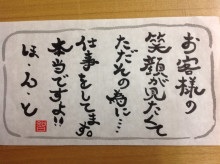 お客様の
笑顔が見たくて
ただその為に…
仕事をしてます。
本当ですよ!!
ほ・ん・と